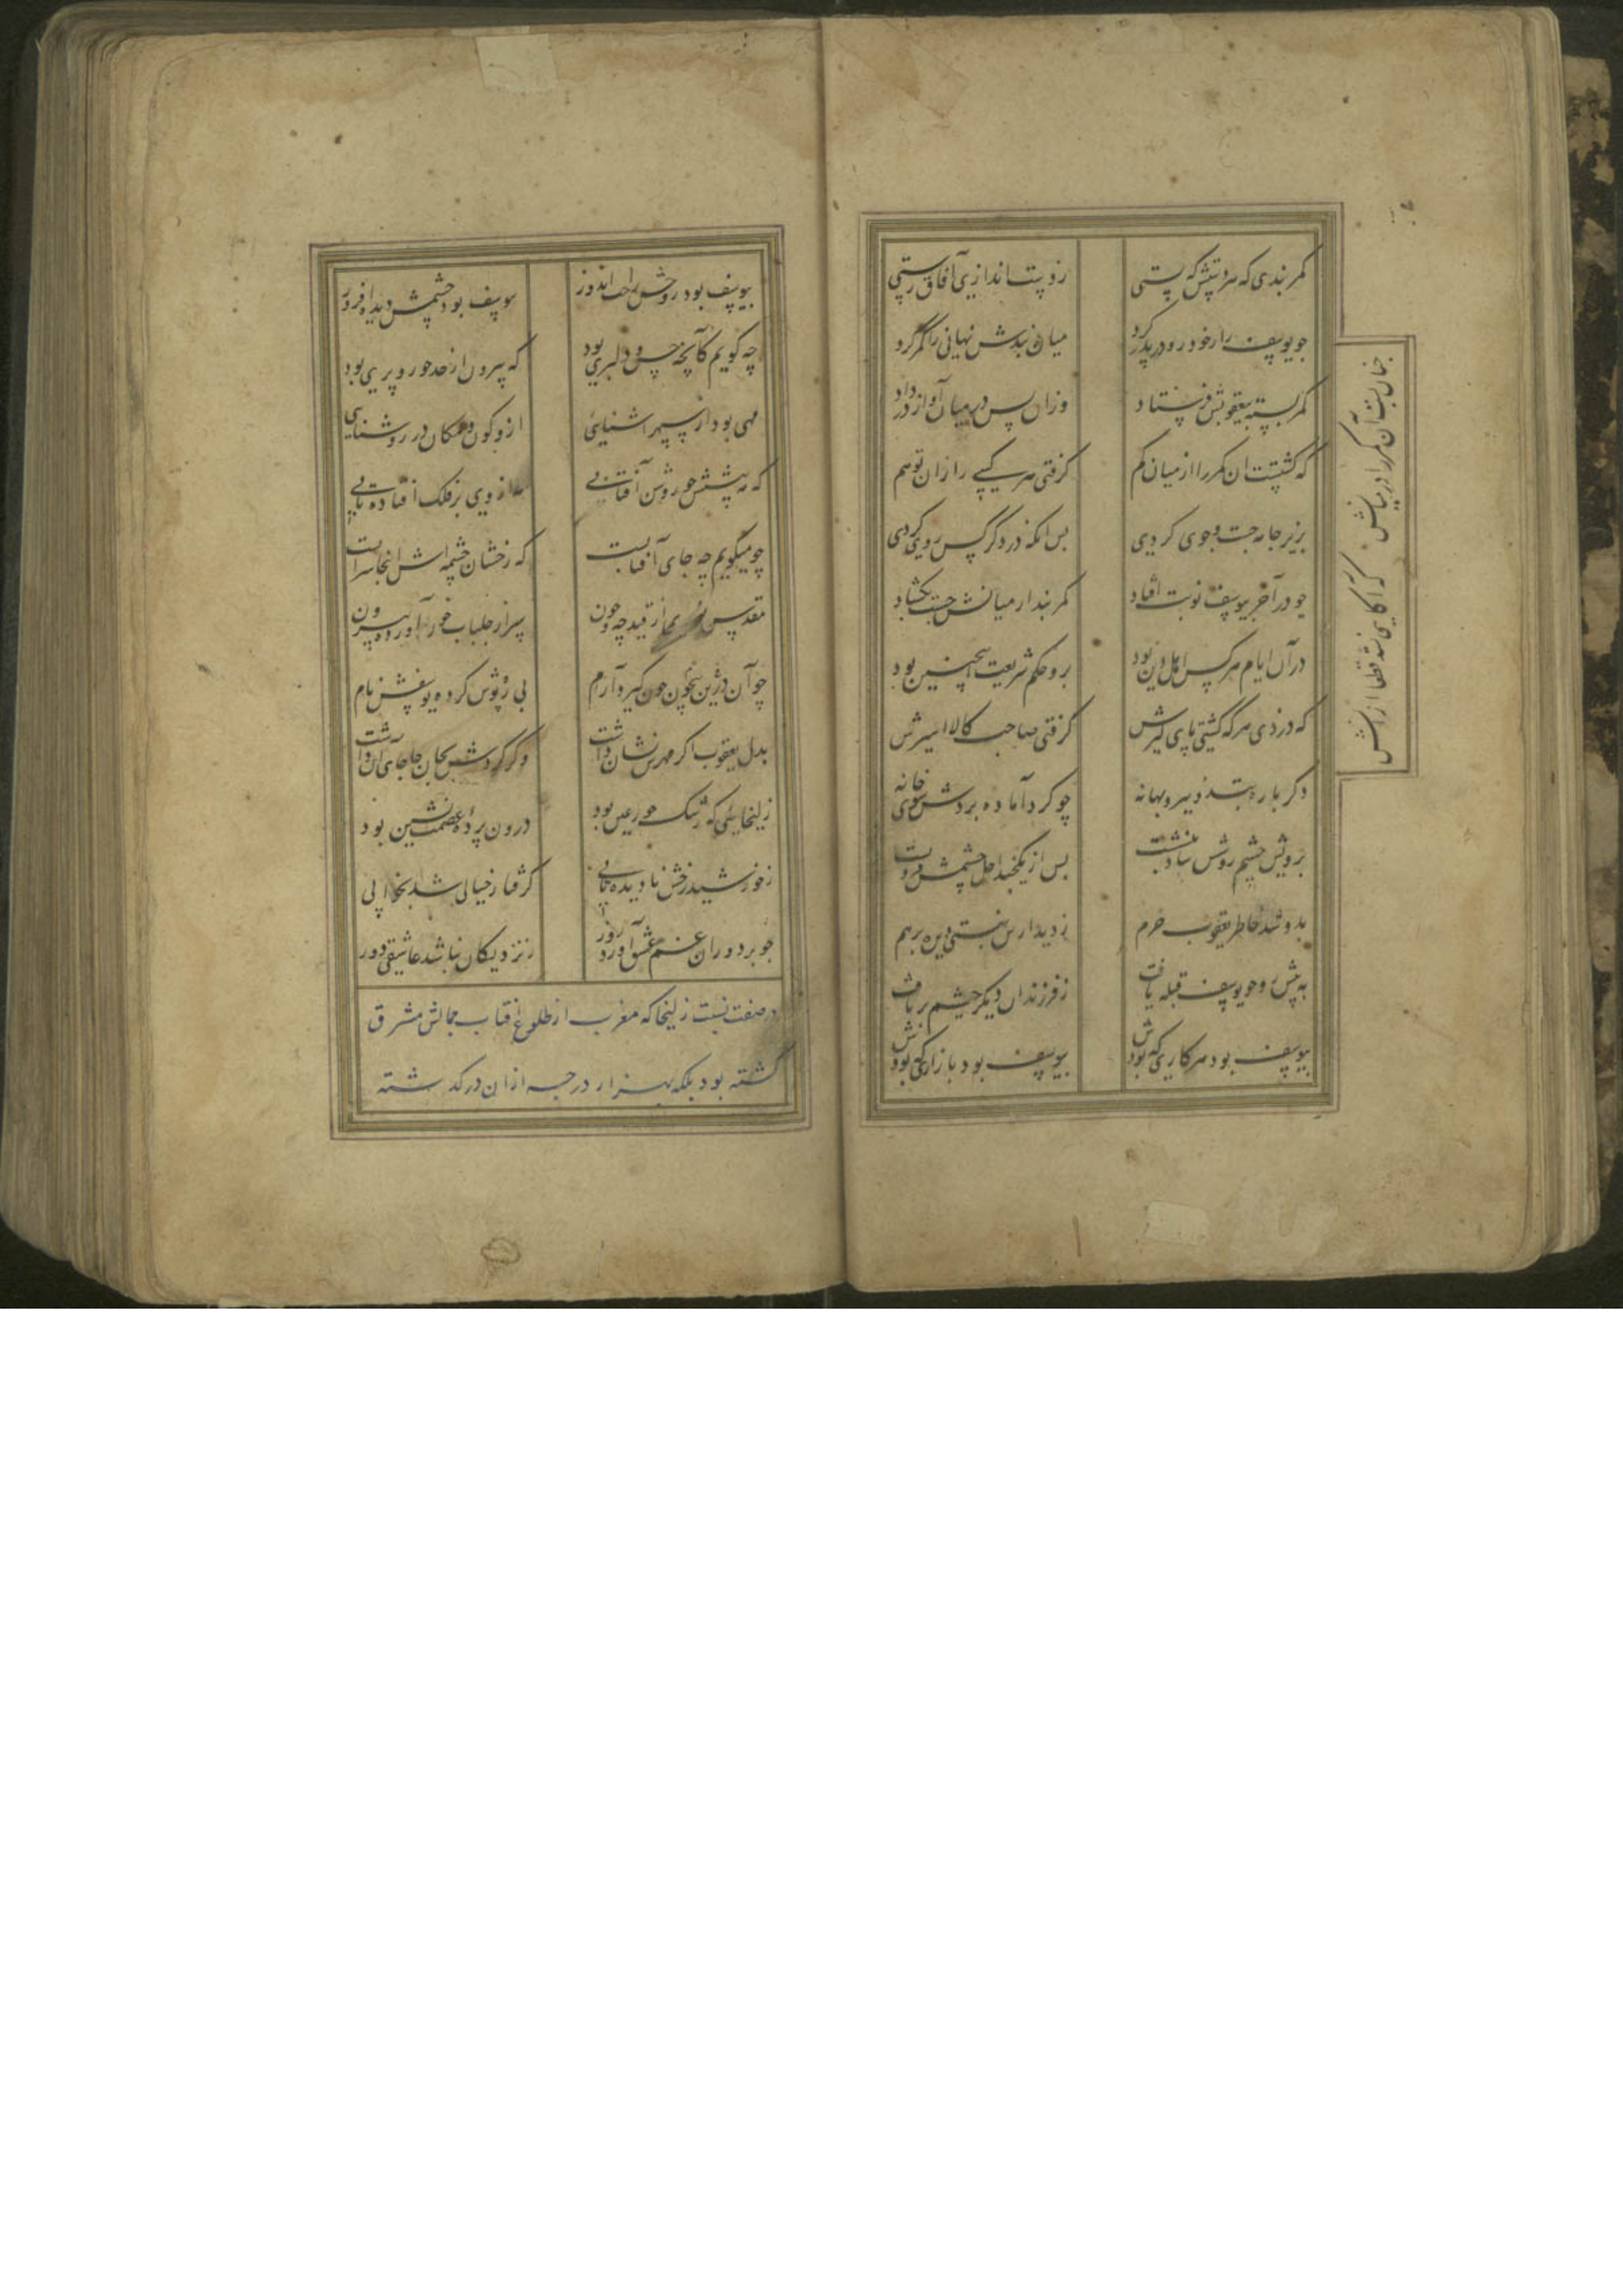 کمربندی که هر دستش که بستی
ز دست اندازی آفاق رستی
چو یوسف را ز خود رو در پدر کرد
میان بندش نهانی زان کمر کرد
چنان بست آن کمر را در میانش
که آگاهی نشد قطعا از آنش
کمر بسته بیعقوبش فرستاد
وزان پس در میان آوازه در داد
که گشتست ان کمر را از میان کم
گرفتی هر کسی را زان توهم
بزیر جامه جست و جوی کردی
پس انکه در دگر کس روی کردی
چو در آخر بیوسف نوبت افتاد
کمر بند از میانش چست بگشاد
در آن ایام هر کس اهل دین بود
برو حکم شریعت اینچنین بود
که دزدی هر که گشتی پای گیرش
گرفتی صاحب کالا اسیرش
دگر باره بتزویر و بهانه
چو کرد آماده بردش سوی خانه
برویش چشم روشن شاد بنشست
پس از یکچند اجل چشمش فرو بست
بدو شد خاطر یعقوب خرم
ز دیدارش نبستی دیده برهم
به پیش رو چو یوسف قبله یافت
ز فرزندان دیگر چشم بر تافت
بیوسف بود هر کاری که بودش
بیوسف بود بازاری که بودش
بیوسف بود روحش راحت اندوز
بیوسف بود چشمش دیده افروز
چه گویم کآنچه حسن و دلبری بود
که بیرون از حد حور و پری بود
مهی بود از سپهر اشنایی
ازو کون و مکان در روشنایی
که مه پیشش چو روشن آفتابی
مه از وی بر فلک افتاده تابی
چو میگویم چه جای آفتابست
که رخشان چشمه اش اینجا سرابست
مقدس نوری از قید چه و چون
سر از جلباب چون آورده بیرون
چو آن بیچون درین چون کرد آرام
پی روپوش کرده یوسفش نام
بدل یعقوب اگر مهرش نهان داشت
وگر کردش بجان جا جای آن داشت
زلیخایی که رشک حور عین بود
درون پرده عصمت نشین بود
ز خورشید رخش نادیده تابی
گرفتار خیالی شد بخوابی
چو بر دوران غم عشق آورد زور
ز نزدیکان نباشد عاشقی دور
در صفت نسبت زلیخا که مغرب از طلوع افتاب جمالش مشرق
گشته بود بلکه بهزار درجه ازان در گذشته